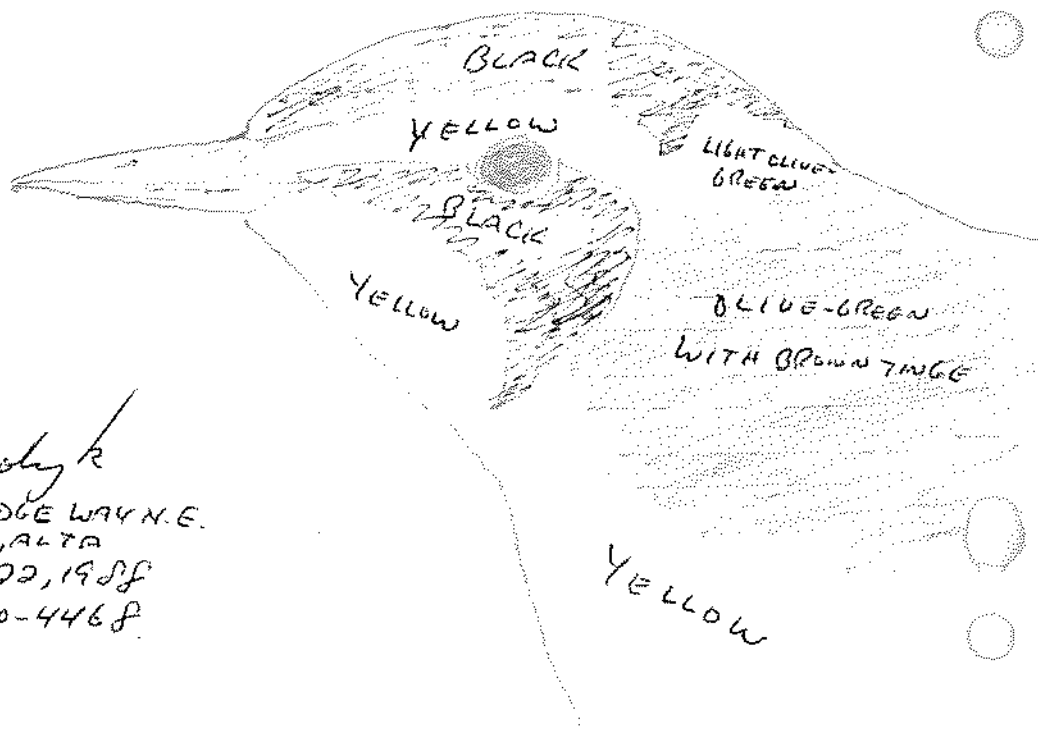 BLACK
YELLOW
LIGHT OLIVE-
GREEN
BLACK
YELLOW
OLIVE-GREEN
WITH BROWN TINGE
DGE WAY N.E.
, ALTA
22, 1988
0-4468
YELLOW